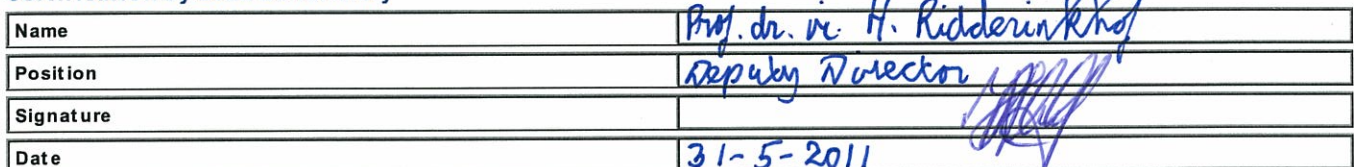 Name Prof. dr. ir. H. Ridderinkhof
Position Deputy Director
Signature
Date 31-5-2011